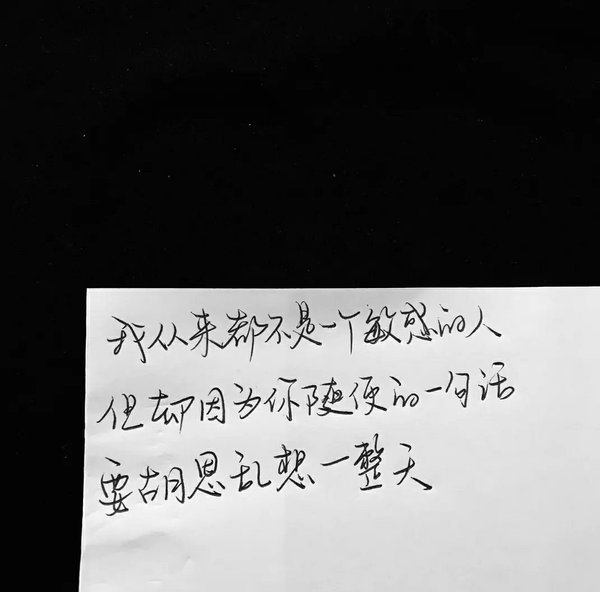 我从来都不是一个敏感的人
但却因为你随便的一句话
要胡思乱想一整天